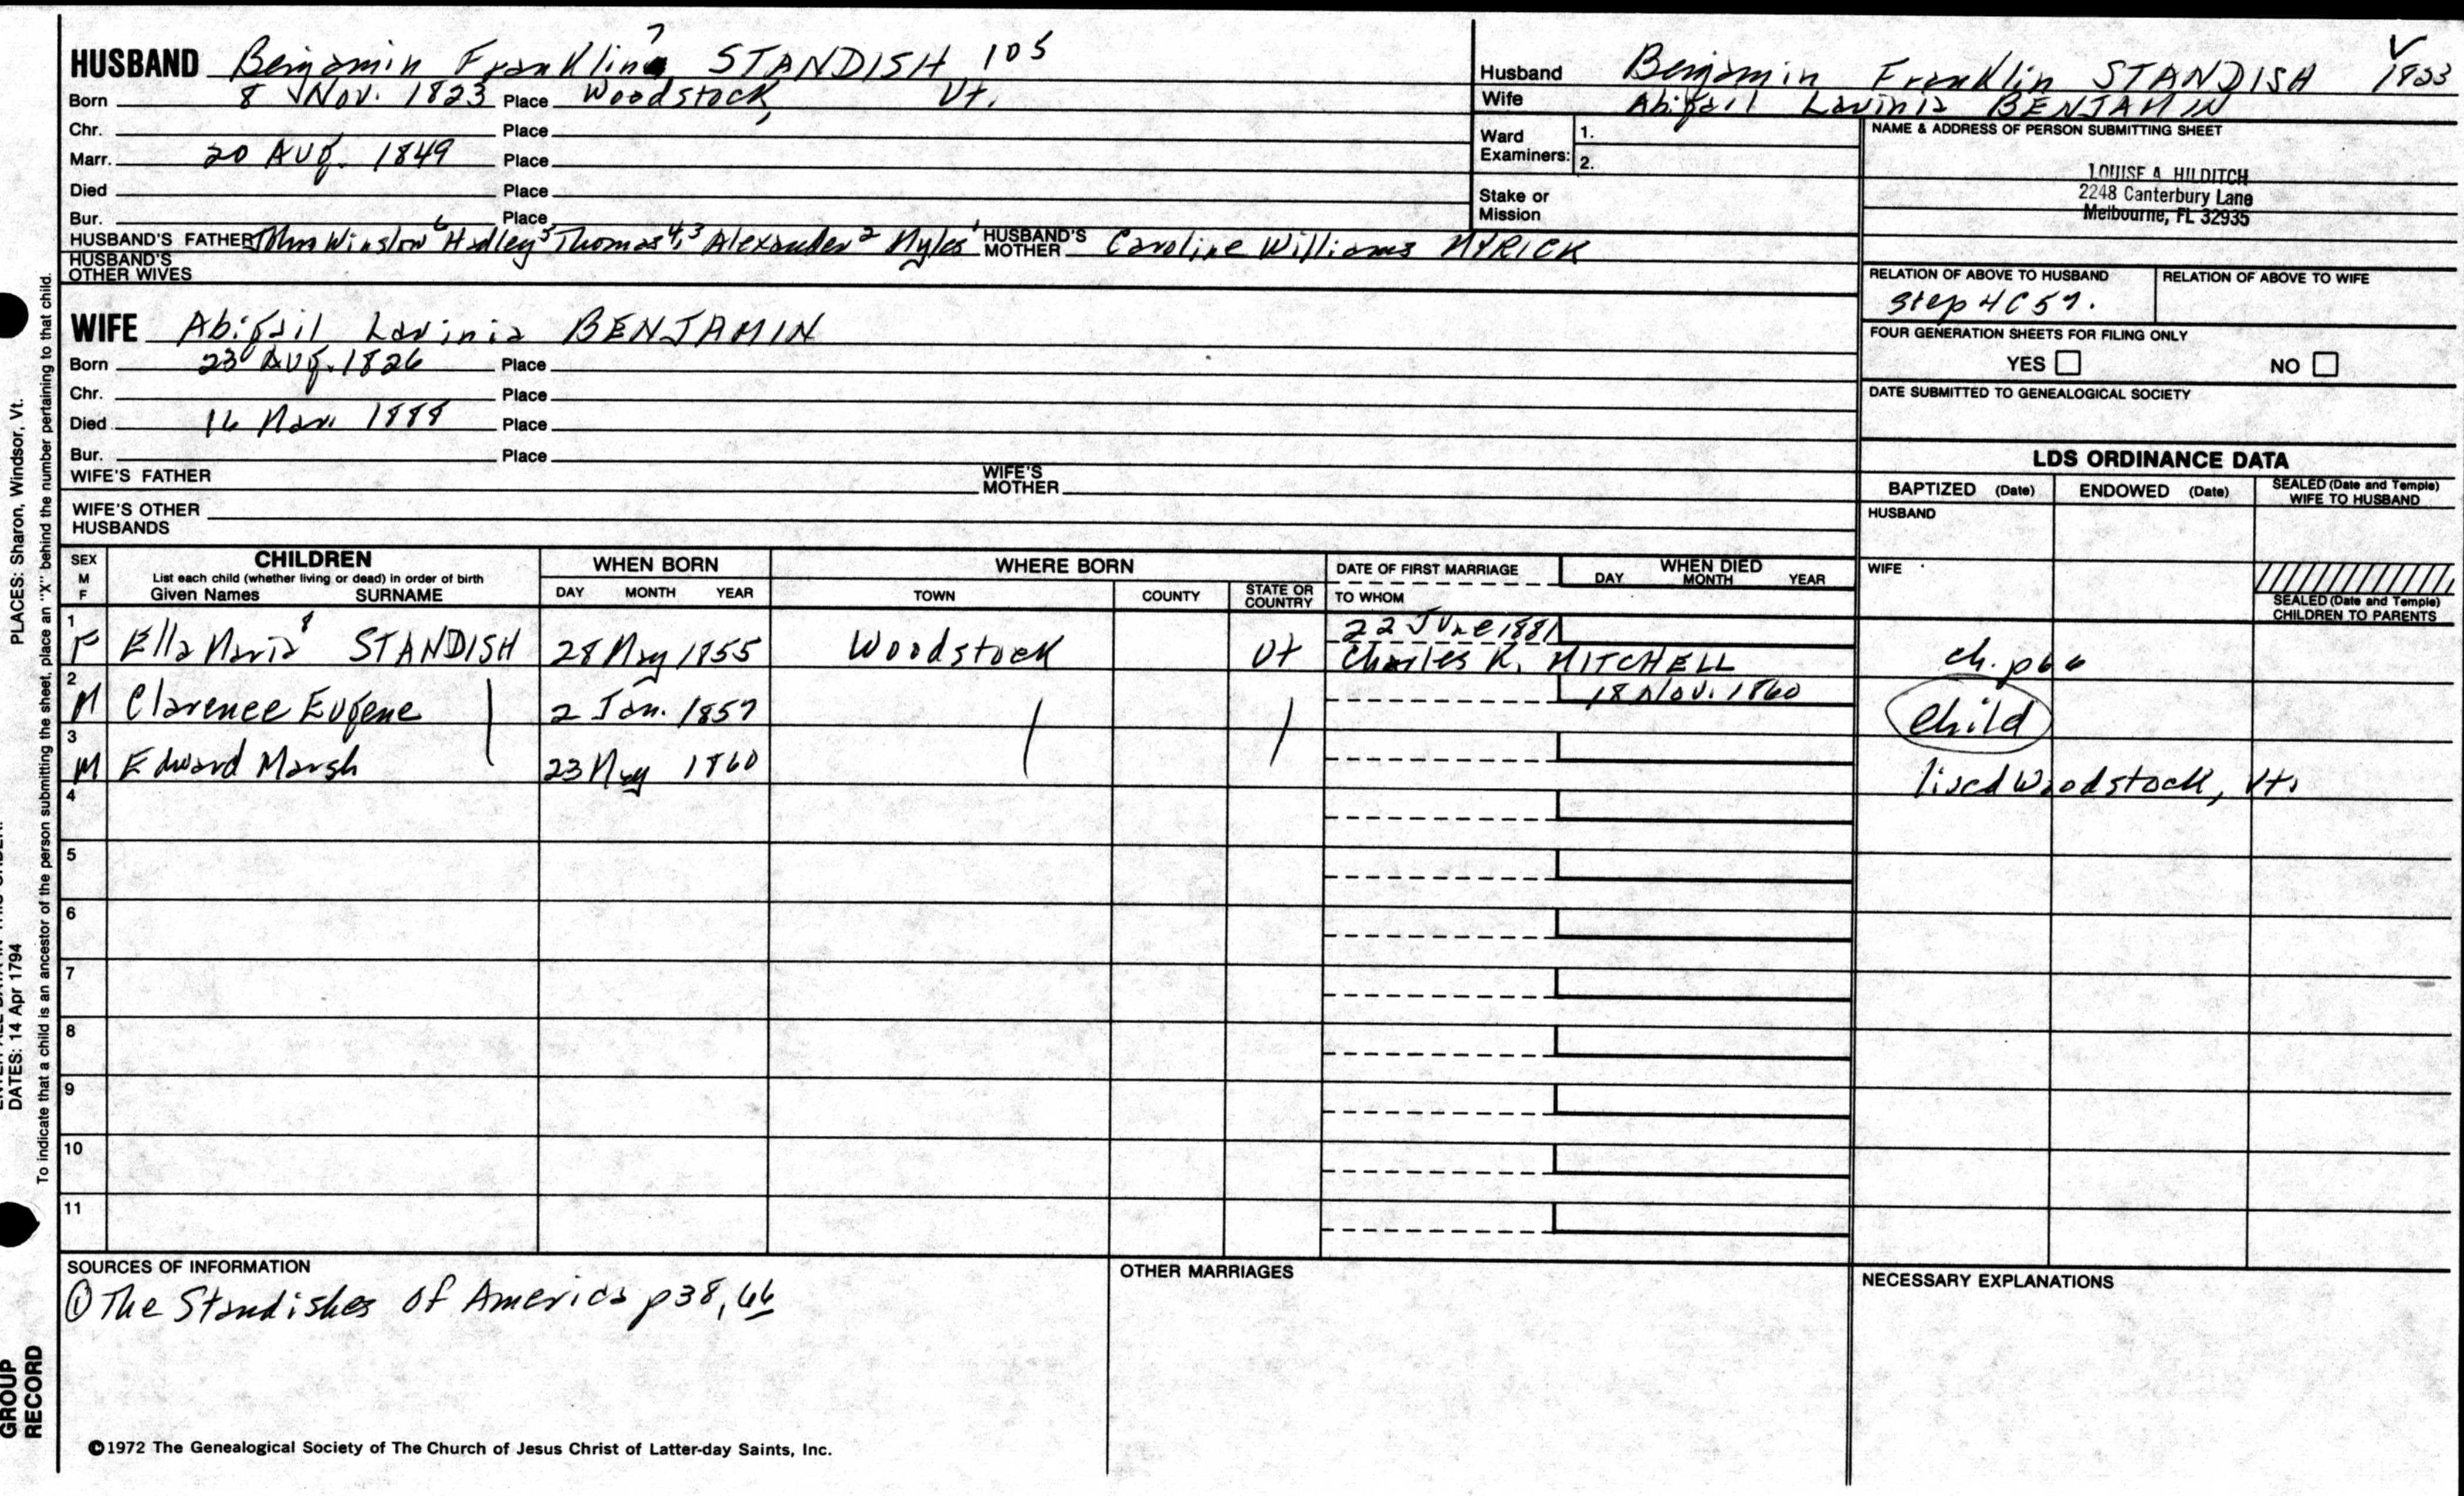 HUSBAND Benjamin Franklin 7 STANDISH 105
Born 8 Nov. 1823 Place Woodstock, Vt.
Chr. Place
Marr. 20 Aug. 1849 Place
Died Place
Bur. Place
HUSBAND'S FATHER John Winslow 6 Hadley 5 Thomas 4,3 Alexander 2 Myles 1 HUSBAND'S MOTHER Caroline Williams MYRICK
HUSBAND'S OTHER WIVES
WIFE Abigail Lavinia BENJAMIN
Born 23 Aug. 1826 Place
Chr. Place
Died 16 Mar. 1888 Place
Bur. Place
WIFE'S FATHER WIFE'S MOTHER
WIFE'S OTHER HUSBANDS
Husband Benjamin Franklin STANDISH 1823
Wife Abigail Lavinia BENJAMIN
Ward Examiners: 1.
2.
Stake or Mission
NAME & ADDRESS OF PERSON SUBMITTING SHEET
LOUISE A HILDITCH
2248 Canterbury Lane
Melbourne, FL 32935
RELATION OF ABOVE TO HUSBAND RELATION OF ABOVE TO WIFE
Step 4C
FOUR GENERATION SHEETS FOR FILING ONLY
YES NO
DATE SUBMITTED TO GENEALOGICAL SOCIETY
LDS ORDINANCE DATA
BAPTIZED (Date) ENDOWED (Date) SEALED (Date and Temple) WIFE TO HUSBAND
HUSBAND
WIFE
SEALED (Date and Temple) CHILDREN TO PARENTS
SEX M F CHILDREN WHEN BORN WHERE BORN DATE OF FIRST MARRIAGE WHEN DIED
List each child (whether living or dead) in order of birth
Given Names SURNAME DAY MONTH YEAR TOWN COUNTY STATE OR COUNTRY TO WHOM DAY MONTH YEAR
1 F Ella Maria 8 STANDISH 28 May 1855 Woodstock Vt 22 June 1881
Charles K. MITCHELL ch. p66
2 M Clarence Eugene 2 Jan. 1857 18 Nov. 1860 Child
3 M Edward Marsh 23 May 1860 lived Woodstock, Vt.
4
5
6
7
8
9
10
11
SOURCES OF INFORMATION
① The Standishes of America p38, 66
OTHER MARRIAGES
NECESSARY EXPLANATIONS
©1972 The Genealogical Society of The Church of Jesus Christ of Latter-day Saints, Inc.
PLACES: Sharon, Windsor, Vt.
DATES: 14 Apr 1794
To indicate that a child is an ancestor of the person submitting the sheet, place an "X" behind the number pertaining to that child.
GROUP
RECORD